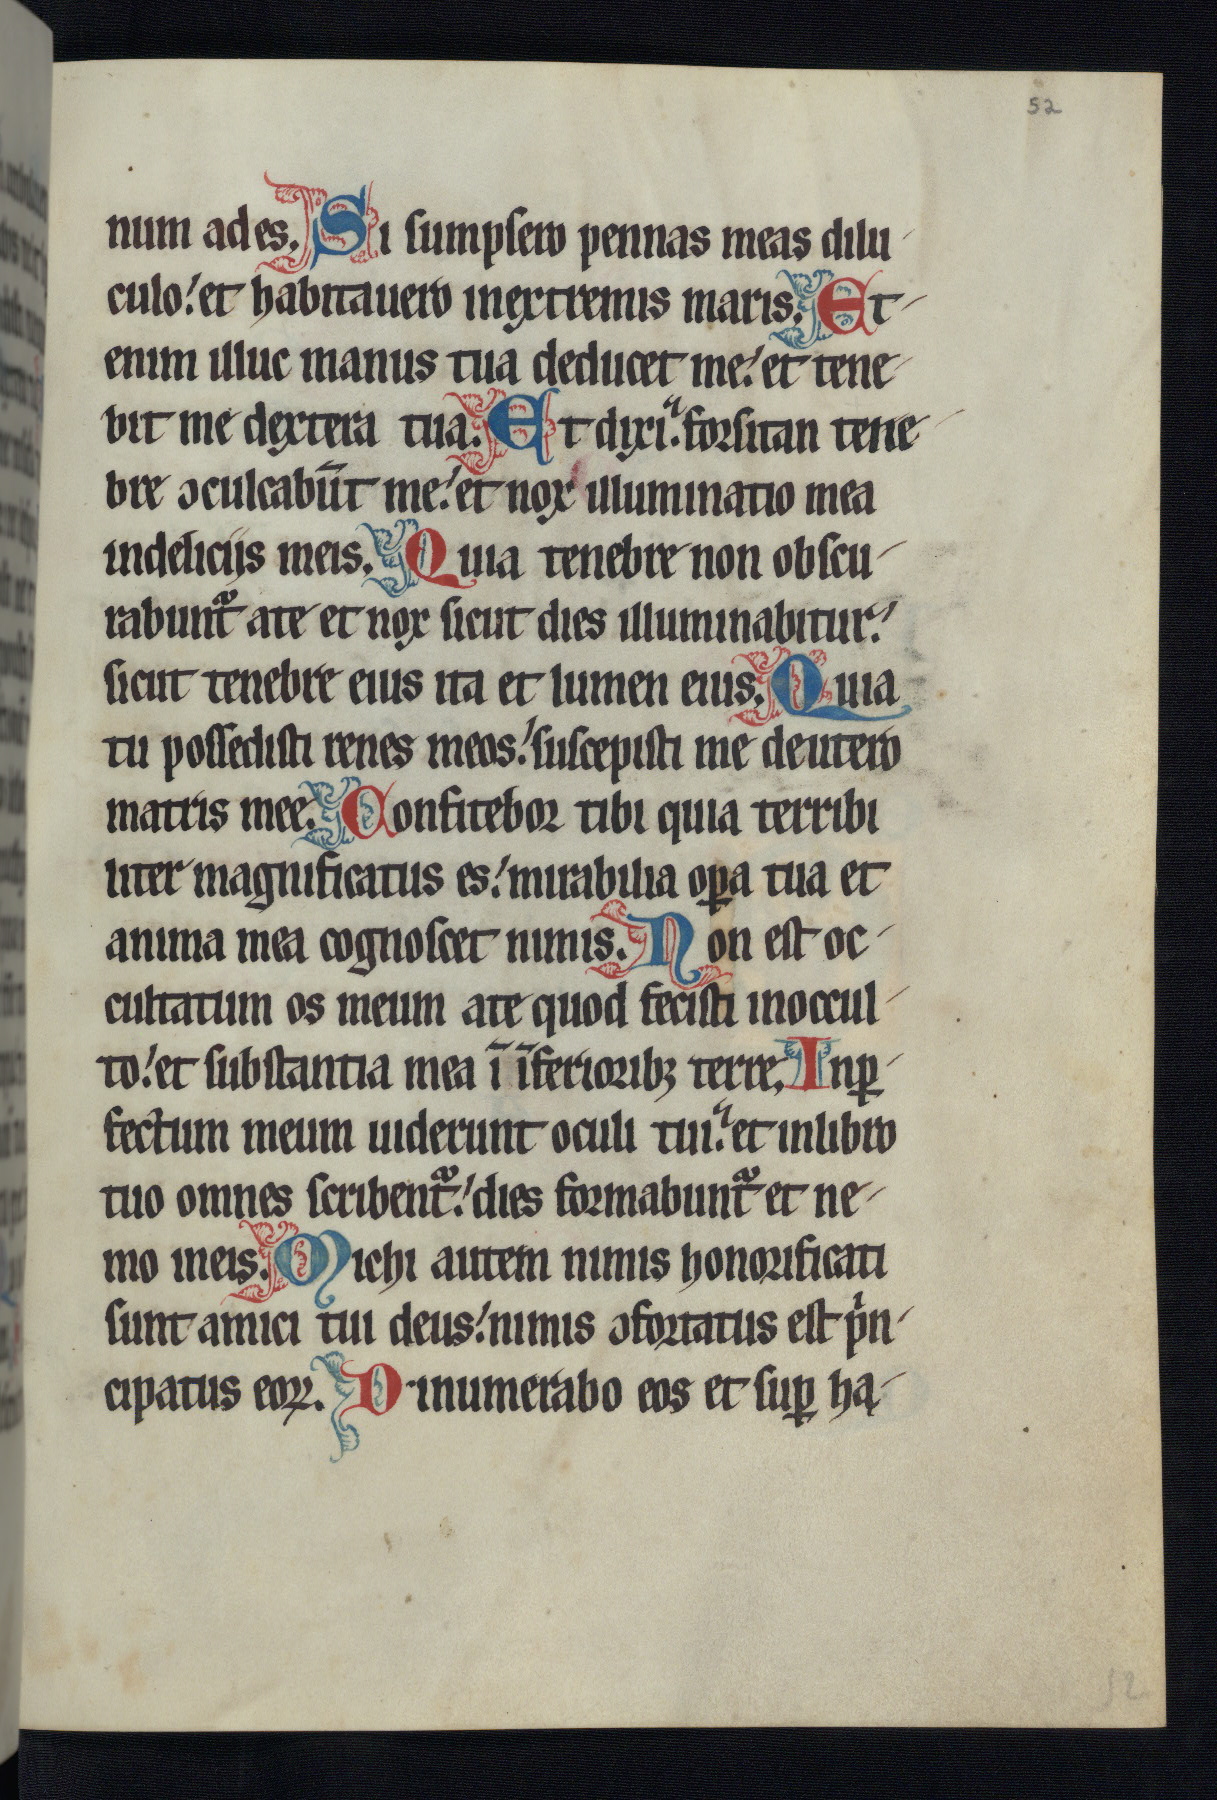 52
num ad es. Si sumpsero pennas meas dilu
culo: et habitauero inextremis maris. Et
enim illuc manus tua deducet me: et tene
bit me dextera tua. Et dixi: forsitan tene
bre ɔculcabūt me: et nox illuminatio mea
indeliciis meis. Quia tenebre non obscu
rabunt᷑ ate et nox sicut dies illuminabitur:
sicut tenebre eius ita et lumen eius. Quia
tu possedisti renes meos: suscepisti me deutero
matris mee. Confitebor tibi quia terribi
liter magnificatus es: mirabilia oꝑa tua et
anima mea cognoscet nimis. Non est oc
cultatum os meum ate quod fecisti inoccul
to: et substantia mea ī īferioribꝫ terre. Inꝑ
fectum meum uiderunt oculi tui: et inlibro
tuo omnes scribent᷑: dies formabunt᷑ et ne
mo ineis. Michi autem nimis honorificati
sunt amici tui deus: nimis ɔfortatus est pⁱn
cipatus eoꝝ. Dinumerabo eos et suꝑ hą
52